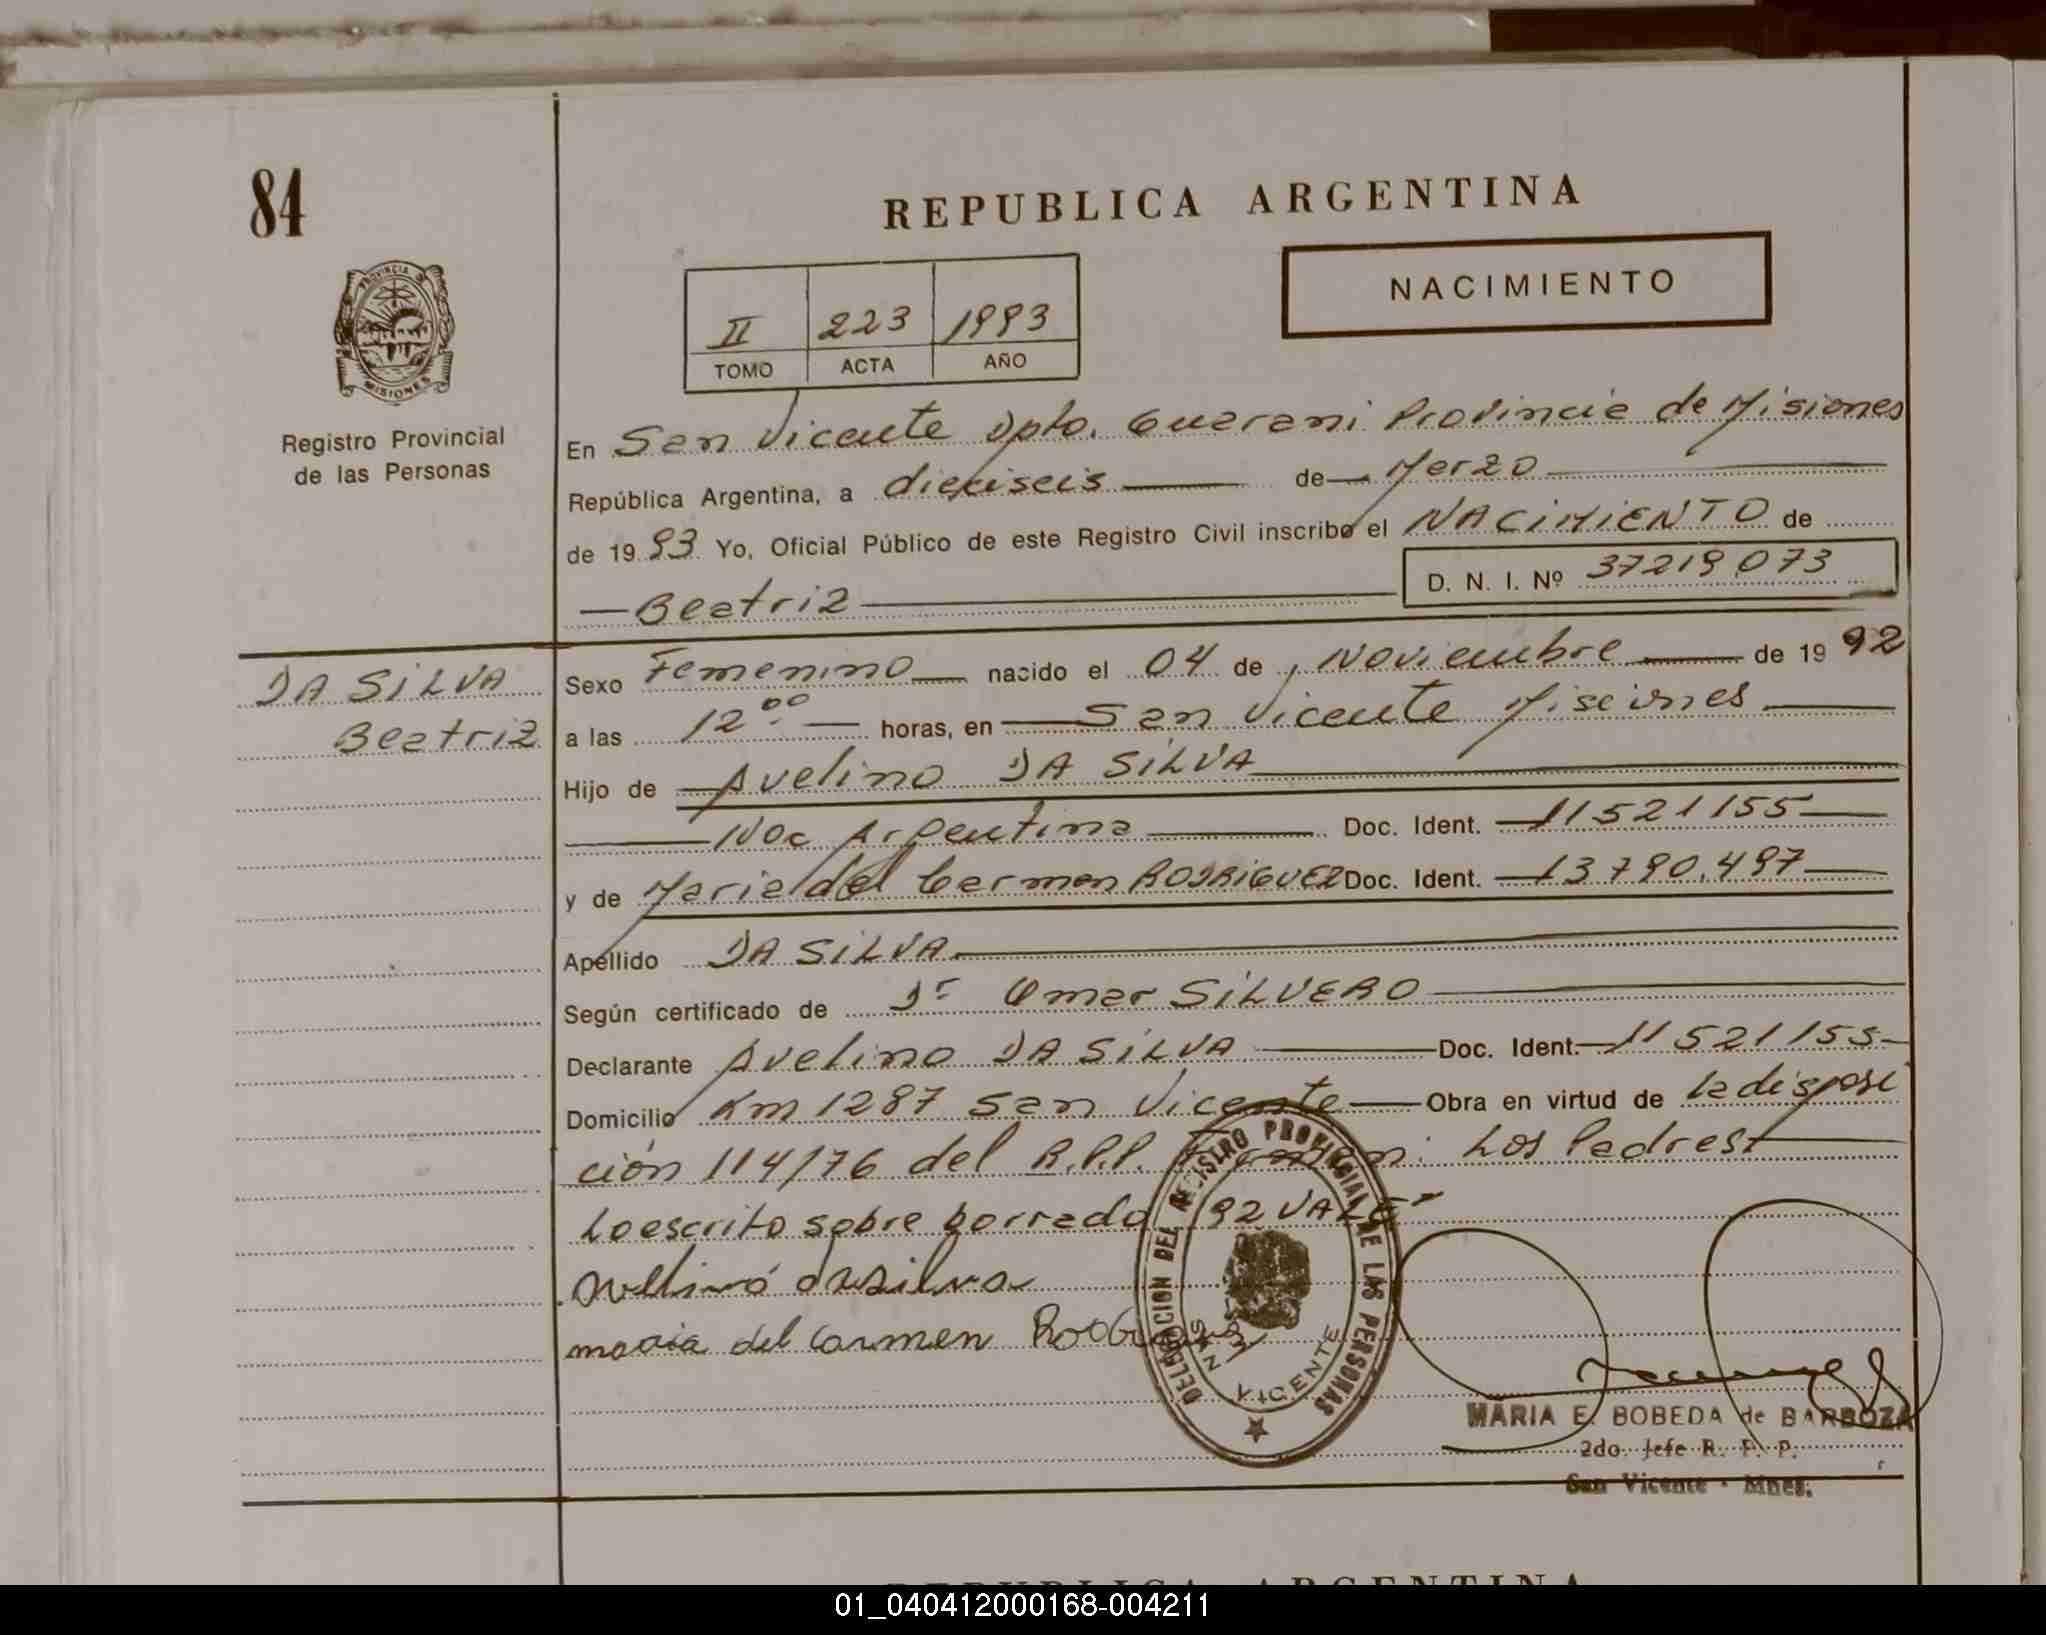 84
REPUBLICA ARGENTINA
NACIMIENTO
II 223 1993
TOMO ACTA AÑO
PROVINCIA DE
MISIONES
Registro Provincial
de las Personas
En San Vicente Dpto. Guarani Provincia de Misiones
República Argentina, a dieciseis de Marzo
de 19 93 Yo, Oficial Público de este Registro Civil inscribo el NACIMIENTO de
Beatriz D. N. I. Nº 37219073
DA SILVA
Beatriz
Sexo Femenino nacido el 04 de Noviembre de 19 92
a las 12 00 horas, en San Vicente Misiones
Hijo de Avelino DA SILVA
Nac Argentina Doc. Ident. 11521155
y de Maria del Carmen RODRIGUEZ Doc. Ident. 13790.497
Apellido DA SILVA
Según certificado de Dr Omar SILVERO
Declarante Avelino DA SILVA Doc. Ident. 11521155
Domicilio Km 1287 San Vicente Obra en virtud de la disposi
ción 114/76 del R.P.P. Firman: Los Padres
Lo escrito sobre borrado 92 VALE
avelino dasilva
maria del carmen
DELEGACION DEL REGISTRO PROVINCIAL DE LAS PERSONAS
SAN VICENTE
MARIA E. BOBEDA de BARBOZA
2do. Jefe R. P. P.
San Vicente - Mnes.
REPUBLICA ARGENTINA
01_040412000168-004211